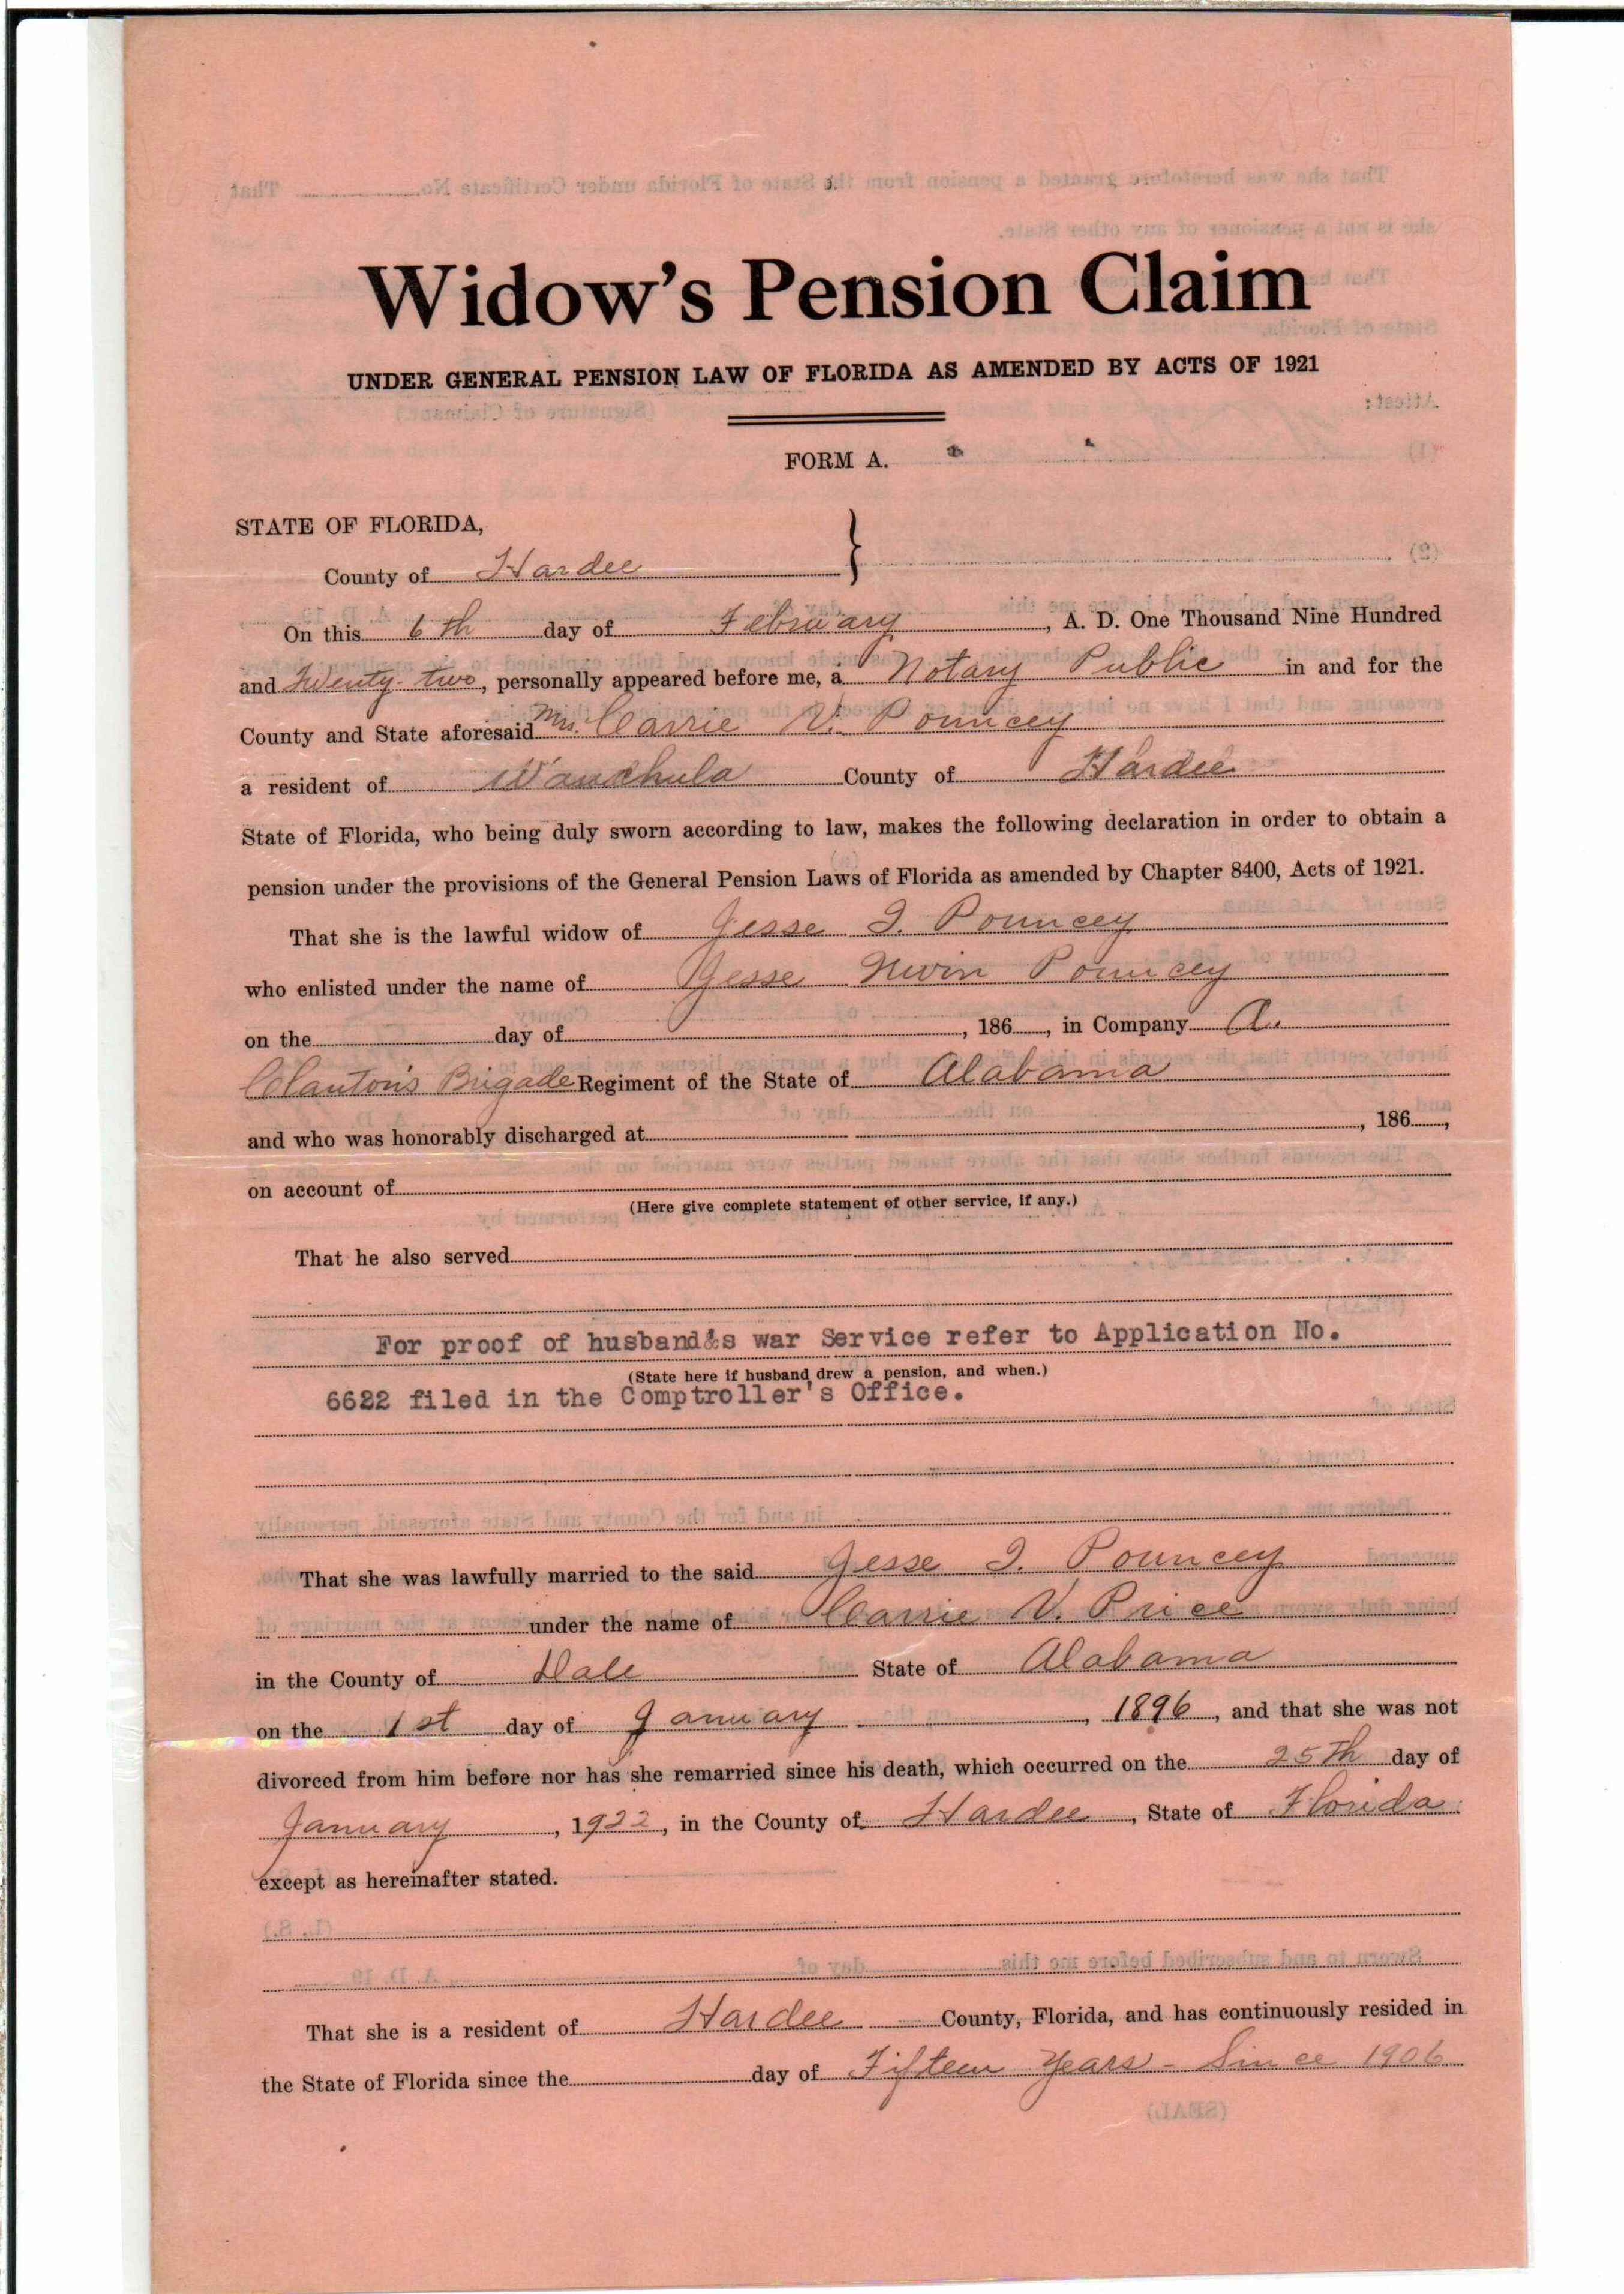 Widow's Pension Claim
UNDER GENERAL PENSION LAW OF FLORIDA AS AMENDED BY ACTS OF 1921
FORM A.
STATE OF FLORIDA,
County of Hardee }
On this 6th day of February, A. D. One Thousand Nine Hundred
and Twenty-two, personally appeared before me, a Notary Public in and for the
County and State aforesaid Mrs. Carrie V. Pouncey
a resident of Wauchula County of Hardee
State of Florida, who being duly sworn according to law, makes the following declaration in order to obtain a
pension under the provisions of the General Pension Laws of Florida as amended by Chapter 8400, Acts of 1921.
That she is the lawful widow of Jesse I. Pouncey
who enlisted under the name of Jesse Pouncey
on the day of , 186 , in Company A.
Clanton's Brigade Regiment of the State of Alabama
and who was honorably discharged at , 186 ,
on account of
(Here give complete statement of other service, if any.)
That he also served
For proof of husband&s war Service refer to Application No.
(State here if husband drew a pension, and when.)
6622 filed in the Comptroller's Office.
That she was lawfully married to the said Jesse I. Pouncey
under the name of Carrie V. Price
in the County of Dale State of Alabama
on the 1st day of January , 1896, and that she was not
divorced from him before nor has she remarried since his death, which occurred on the 25th day of
January , 1922, in the County of Hardee, State of Florida
except as hereinafter stated.
That she is a resident of Hardee County, Florida, and has continuously resided in
the State of Florida since the day of Fifteen Years - Since 1906